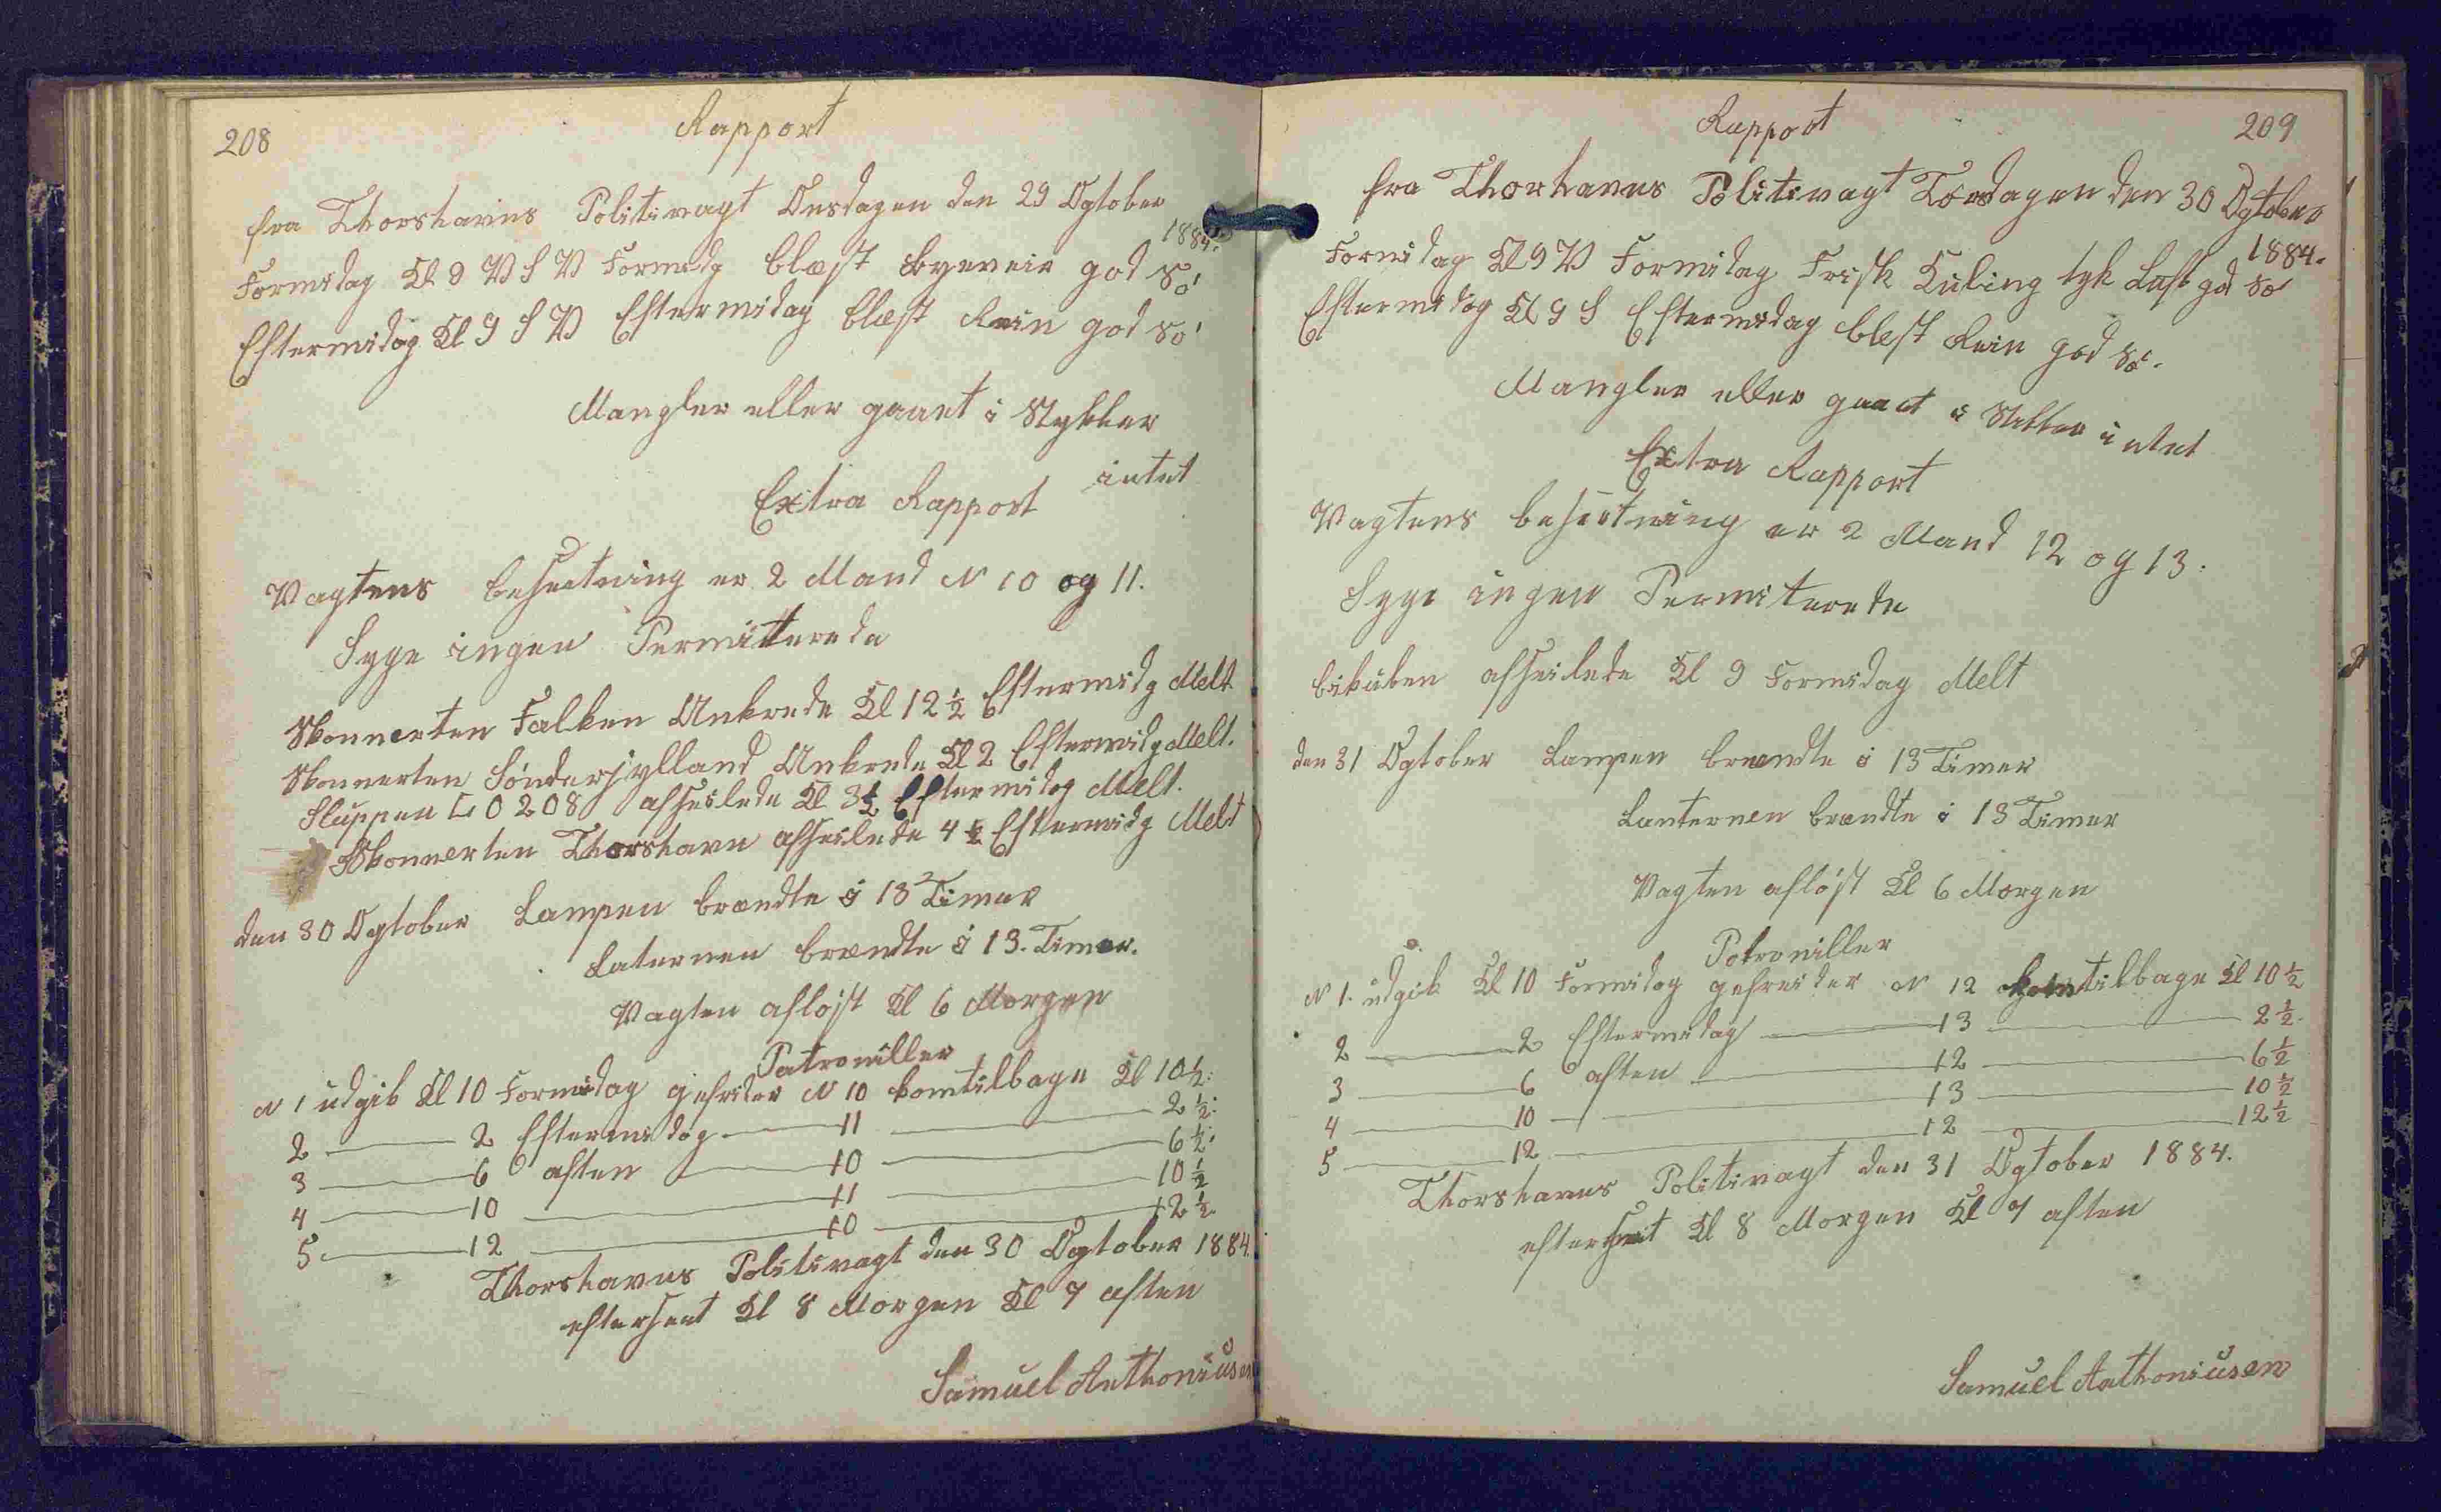 208
Rapport
fra Thorshavns Politivagt Onsdagen den 29 Ogtober
1884.
Formidag Kl 9 V S V Formidg blæst Byeveir god Sø
Eftermidag Kl 9 S V Eftermidag blæst Rein god Sø
Mangler eller gaaet i Stykker
intet
Extra Rapport
Vagtens besætning er 2 Mand N 10 og 11.
Syge ingen Permitterede
Skonnerten Falken Ankrede Kl 12½ Eftermidg Melt
Skonnerten Sønderjylland Ankrede Kl 2 Eftermidg Melt.
Sluppen 208 afseilede Kl 3½ Eftermidag Melt.
Skonnerten Thorshavn afseilede 4½ Eftermidg Melt
den 30 Ogtober Lampen brændte i 13 Timer
Laternen brændte i 13. Timer.
Vagten afløst Kl 6 Morgen
Patroniller
N 1 udgik Kl 10 Formidag gefreider N 10 kom tilbage Kl 10½.
2 — 2 Eftermidag — 11 — 2½.
3 — 6 aften — 10 — 6½.
4 — 10 — 11 — 10½
5 — 12 — 10 — 12½.
Thorshavns Politivagt den 30 Ogtober 1884.
efterseet Kl 8 Morgen Kl 7 aften
Samuel Anthoniusen
209
Rapport
fra Thorhavns Politivagt Torsdagen den 30 Ogtober
1884.
Formidag Kl 9 V Formidag Frisk Kuling tyk Luft god Sø
Eftermidag Kl 9 S Eftermidag blest Rein god Sø.
Mangler eller gaaet i Stekker intet
Extra Rapport
Vagtens besætning er 2 Mand 12 og 13.
Syge ingen Permiterede
bikuben afseilede Kl 9 Formidag Melt
den 31 Ogtober Lampen brændte i 13 Timer
Lanternen brændte i 13 Timer
Vagten afløst Kl 6 Morgen
Patroniller
N 1. udgik Kl 10 Formidag gefreider N 12 kom tilbage Kl 10½
2 — 2 Eftermidag — 13 — 2½.
3 — 6 aften — 12 — 6½
4 — 10 — 13 — 10½
5 — 12 — 12 — 12½
Thorshavns Politivagt den 31 Ogtober 1884.
efterseet Kl 8 Morgen Kl 7 aften
Samuel Anthoniusen